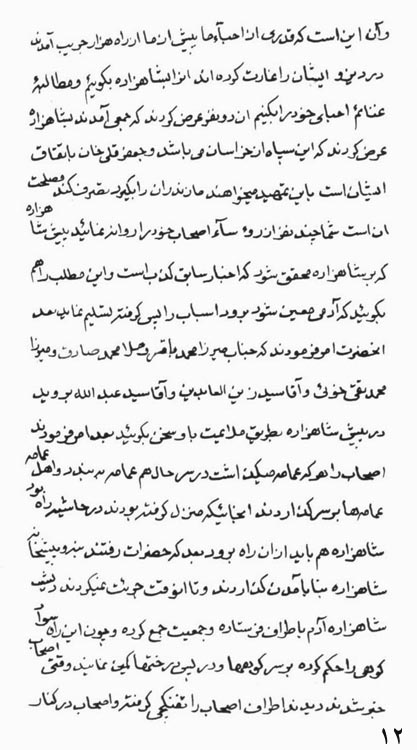 وآن این است که قدری از احبآء ما پیش از ما از راه هزار جریب آمدند
در دزدی و ایشان را غارت کرده اند این را بشاهزاده بگوئیم و مطالبهٔ
غنائم احبای خود را بکنیم ان دو نفر عرض کردند که جمعی آمدند بشاهزاده
عرض کردند که این سپاه از خراسان می باشد و جعفر قلی خان باتفاق
ایشان است باین تمهید میخواهند مازندران را بگیرند تصرف کنند مصلحت
ان است شما چند نفر از رؤسآء اصحاب خود را روانه نمائید پیش شاهزاده
که بر شاهزاده محقق شود که اخبار سابق کذب است و این مطلب را هم
بگوئید که آدمی معین شود برود اسباب را پس گرفته تسلیم نماید بعد
انحضرت امر فرمودند که جناب میرزا محمد باقر و ملا محمد صادق و میرزا
محمد تقی جوینی و آقا سید زین العابدین و آقا سید عبد الله بروید
در پیش شاهزاده بطریق ملایمت با او سخن بگوئید بعد امر فرمودند
اصحاب را هر که عمامه میگذاشت در سر حال هم عمامه به بندد و اهل عمامه
عمامه ها بر سر گذاردند انجائیکه منزل گرفته بودند در حاشیه راه بود
شاهزاده هم باید از ان راه برود بعد که حضرات رفتند نزد پیشخانه
شاهزاده بنا بآمدن گذاردند و تا انوقت جرئت نمیکردند پیش
شاهزاده آدم باطراف فرستاده و جمعیت جمع کرده و چون این راه سواد
کوهی را حکم کرده بر سر کوهها و در پس درختها کمین نمایند وقتی اصحاب
خبر شدند دیدند اطراف اصحاب را تفنگچی گرفته و اصحاب در کنار
۱۲